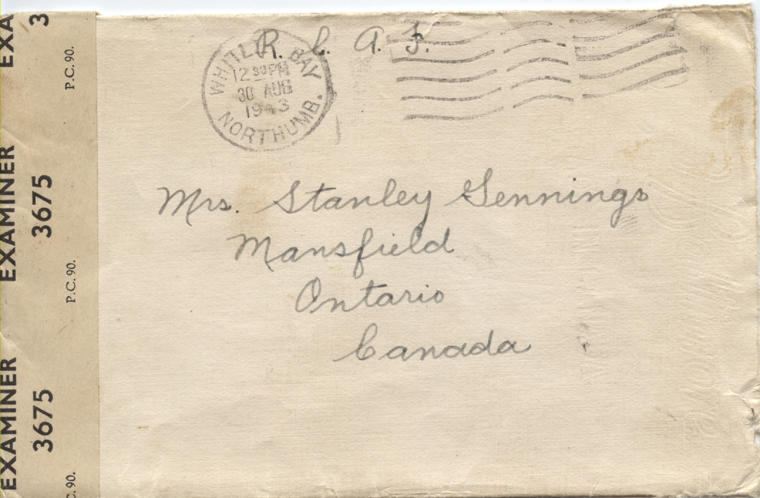 R. C. A. F.
WHITLEY BAY
12 30 PM
30 AUG
1943
NORTHUMB.
Mrs. Stanley Jennings
Mansfield
Ontario
Canada
EXAMINER 3675
P.C. 90.
EXAMINER 3675
P.C. 90.
EXA 3
P.C. 90.